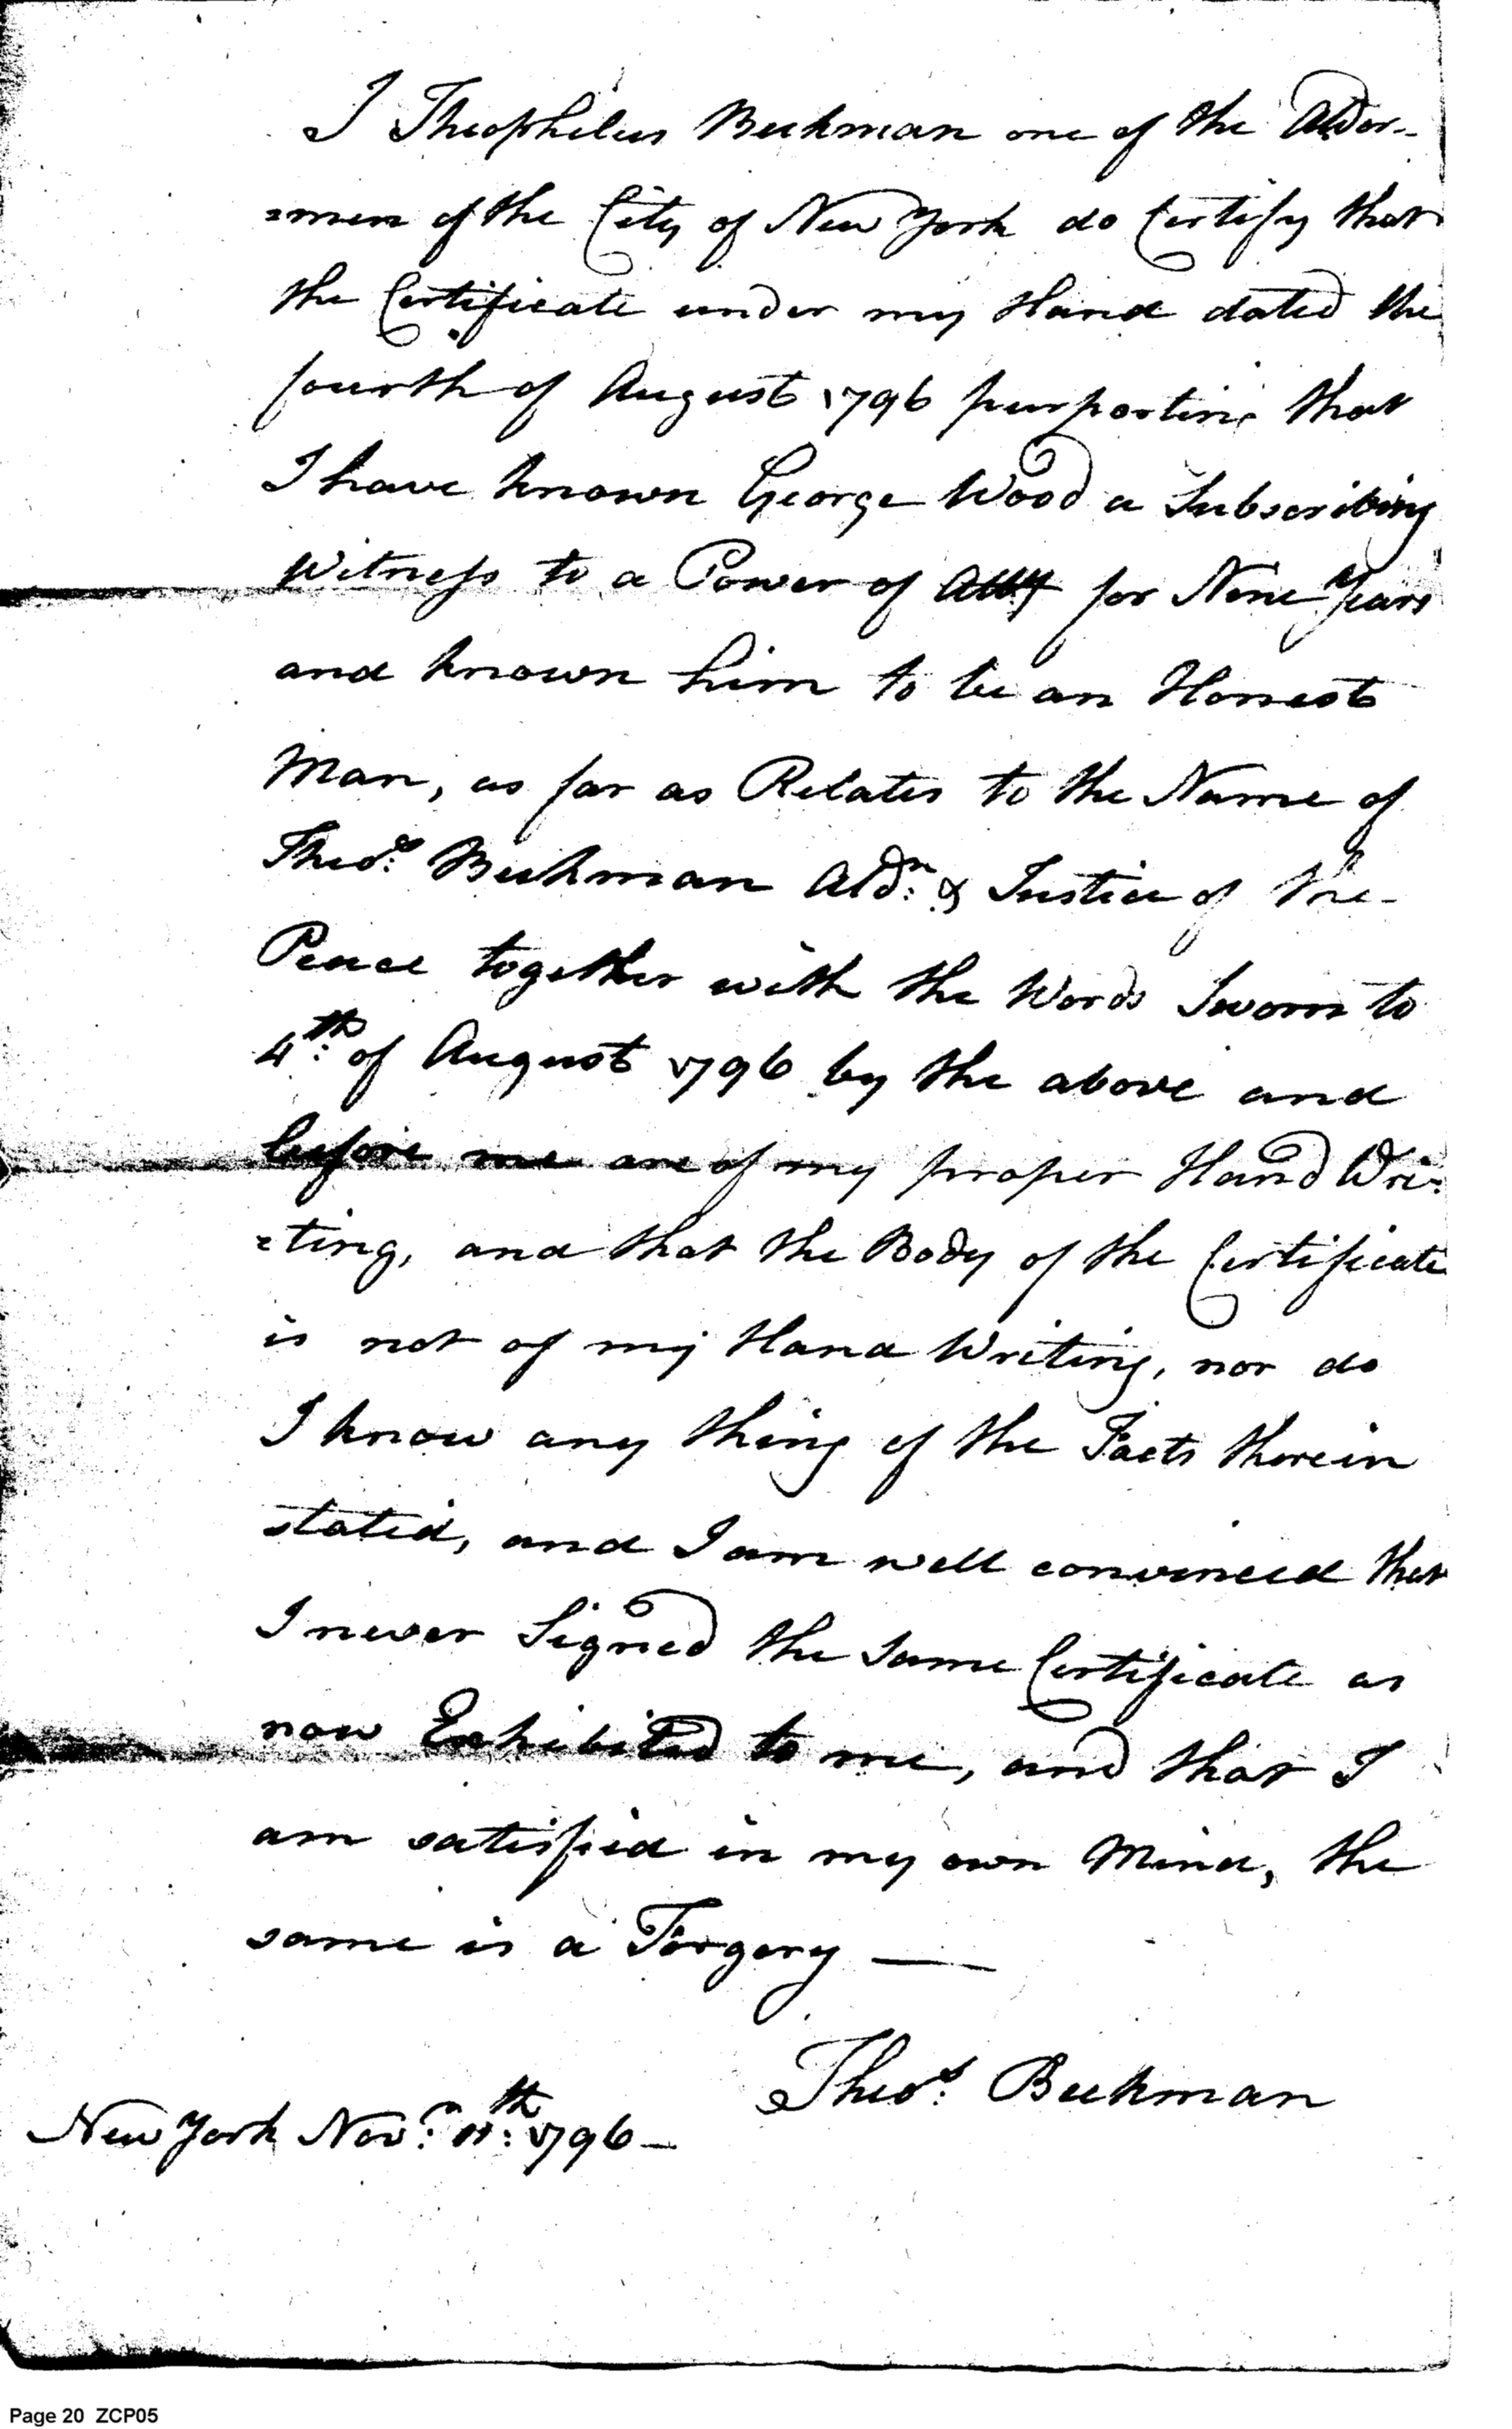 I Theophilus Beekman one of the Alder-
=men of the City of New York do Certify that
the Certificate under my Hand dated the
fourth of August 1796 purporting that
I have known George Wood a Subscribing
Witness to a Power of Atty for Nine Years
and known him to be an Honest
Man, as far as Relates to the Name of
Theos. Beekman Aldn: & Justice of the
Peace together with the Words Sworn to
4th: of August 1796 by the above and
before me are of my proper Hand Wri=
=ting, and that the Body of the Certificate
is not of my Hand Writing, nor do
I know any thing of the Facts therein
stated, and I am well convinced that
I never Signed the same Certificate as
now Exhibited to me, and that I
am satisfied in my own Mind, the
same is a Forgery —
Theos: Beekman
New York Novr: 11th: 1796 —
Page 20 ZCP05